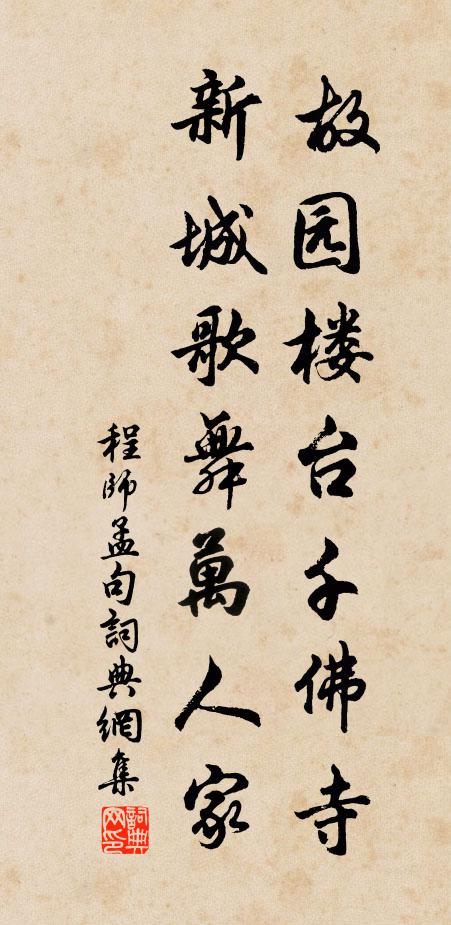 故园楼台千佛寺
新城歌舞萬人家
程師孟句詞典網集
詞典网印